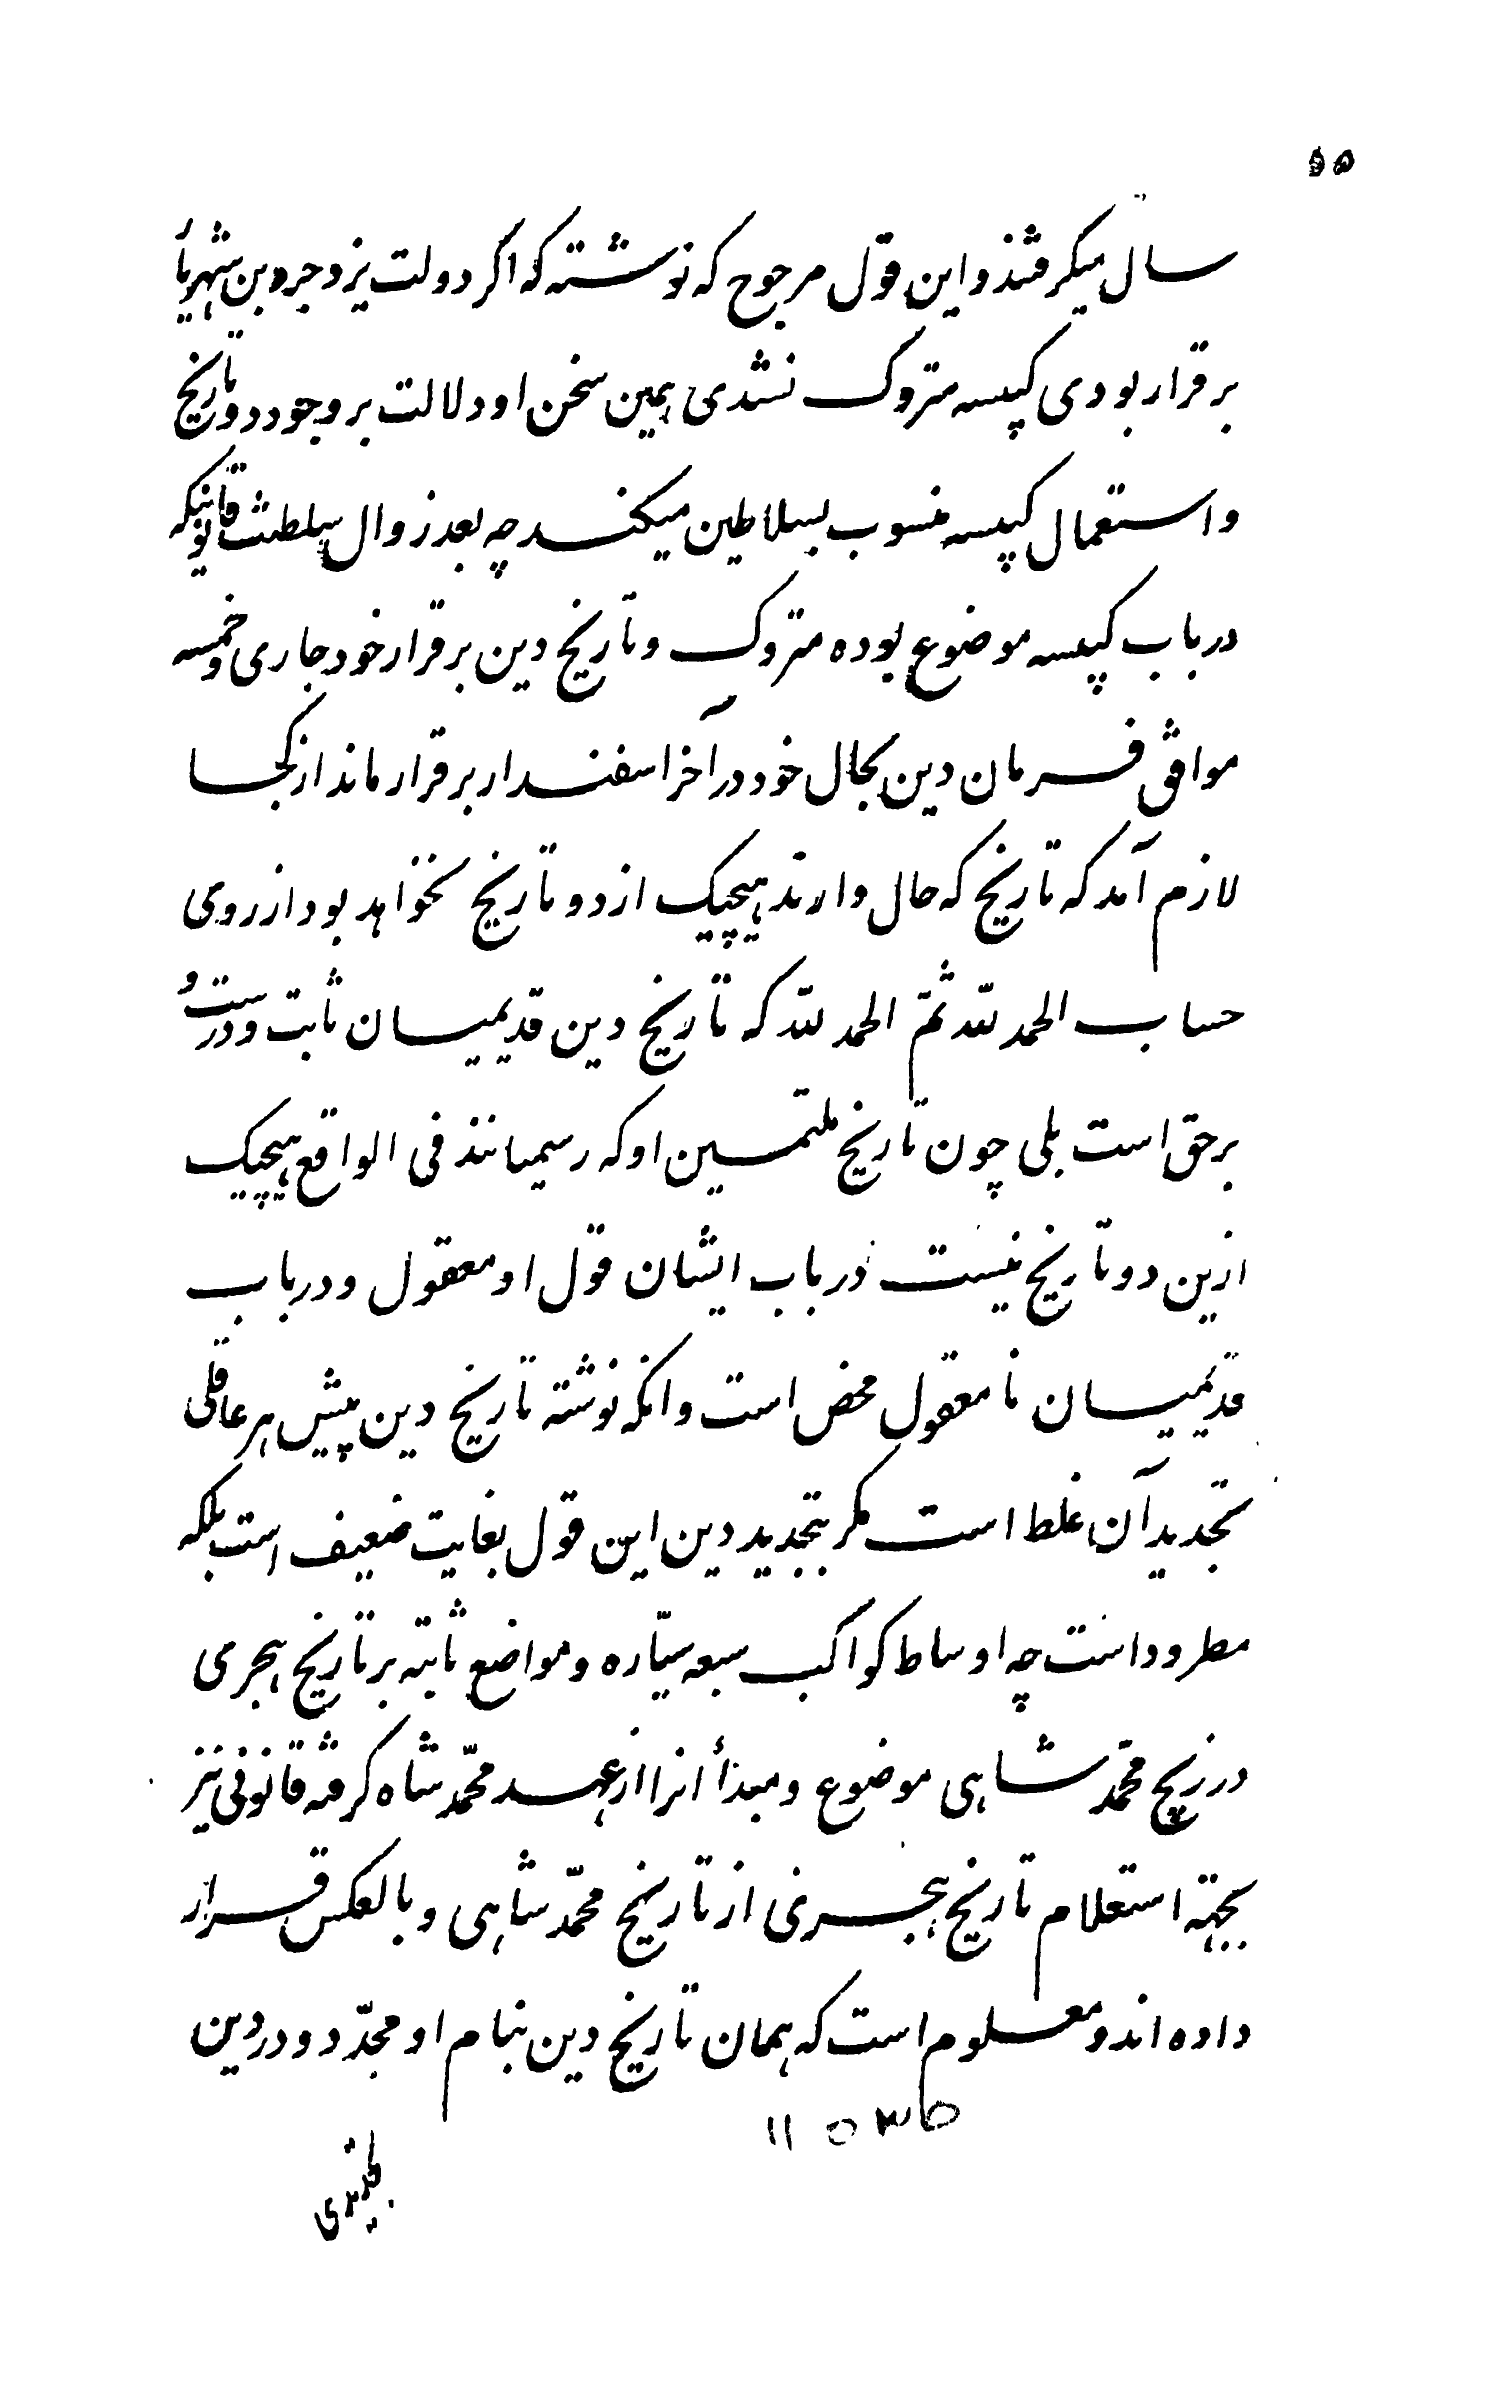 ٥٥
سال میکرفتند و این قول مرجوح که نوشته که اکر دولت یزدجرد بن شهریار
برقرار بودی کبیسه متروک نشدی همین سخن او دلالت بر وجود دو تاریخ
و استعمال کبیسه منسوب بسلاطین میکند چه بعد زوال سلطنت قانونیکه
در باب کبیسه موضوع بوده متروک و تاریخ دین برقرار خود جاری و خمسه
موافق فرمان دین بحال خود در آخر اسفندار برقرار ماند از کجا
لازم آمد که تاریخ که حال دارند هیچیک از دو تاریخ نخواهد بود از روی
حساب الحمد لله ثم الحمد لله که تاریخ دین قدیمیان ثابت و درست و
برحق است بلی چون تاریخ ملتمسین او که رسمیانند فی الواقع هیچیک
ازین دو تاریخ نیست در باب ایشان قول او معقول و در باب
قدیمیان نامعقول محض است و انکه نوشته تاریخ دین پیش هر عاقلی
تجدید آن غلط است مکر بتجدید دین این قول بغایت ضعیف است بلکه
مطرود است چه اوساط کواکب سبعه سیّاره و مواضع ثابته بر تاریخ هجری
در زیج محمّد شاهی موضوع و مبدأ انرا از عهد محمّد شاه کرفته قانونی نیز
بجهته استعلام تاریخ هجری از تاریخ محمّد شاهی و بالعکس قرار
داده اند و معلوم است که همان تاریخ دین بنام او مجدّد و در دین